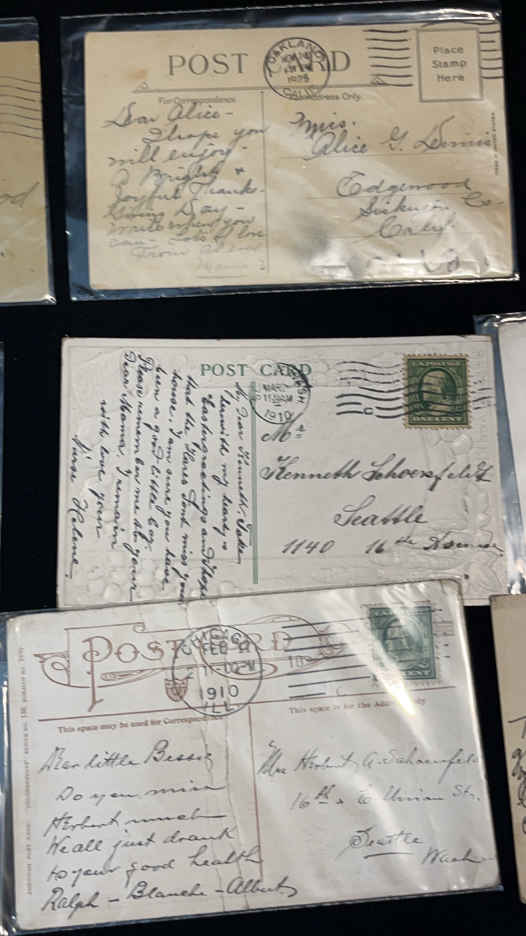 POST CARD
OAKLAND
NOV
1925
CALIF.
Place
Stamp
Here
For Correspondence
Address Only.
Dear Alice -
I hope you
will enjoy
a Bright &
Joyful Thanks-
Giving Day -
write when you
can - Lots of love
From
Miss.
Alice G. Dennis
Edgewood
Siskiyou Co.
Calif.
POST CARD
MAR
11 AM
1910
My Dear Kenneth, Take
herewith my hearty
Eastergreetings and I hope
that the Hares dont miss your
house. I am sure you have
been a good little boy.
Please remember me to your
Dear Mama. I remain
with love your
Nurse Helene.
Mr
Kenneth Schoenfeldt
Seattle
1140 16th Avenue
POST CARD
CHICAGO
FEB
1910
ILL
This space may be used for Correspondence
This space is for the Address only
Dear little Bessie
Do you miss
Herbert much
We all just drank
to your good health
Ralph - Blanche - Albert
Mrs Herbert A. Schoenfeld
16th & E Union Str.
Seattle
Wash